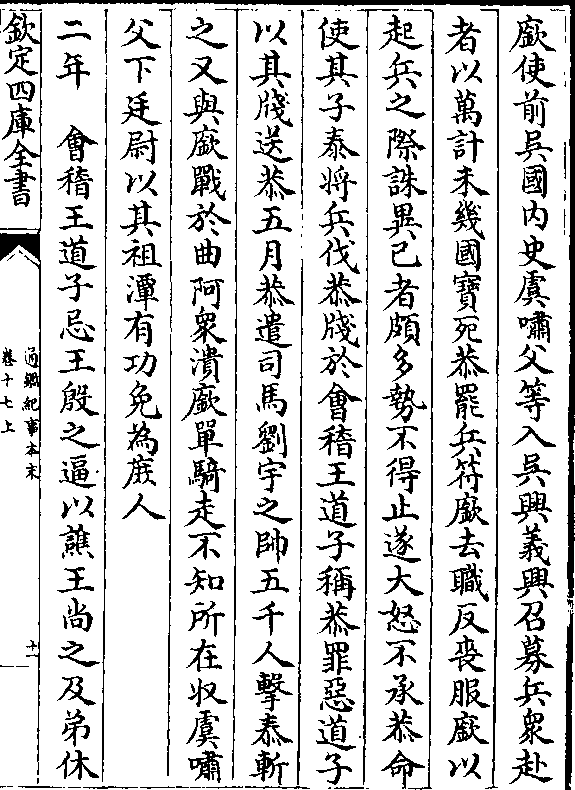 廞使前吳國内史虞嘯父等入吳興義興召募兵衆赴
者以萬計未幾國寶死恭罷兵符廞去職反喪服廞以
起兵之際誅異己者頗多勢不得止遂大怒不承恭命
使其子泰將兵伐恭牋於會稽王道子稱恭罪惡道子
以其牋送恭五月恭遣司馬劉牢之帥五千人擊泰斬
之又與廞戰於曲阿衆潰廞單騎走不知所在收虞嘯
父下廷尉以其祖潭有功免為庶人
二年　會稽王道子忌王殷之逼以譙王尚之及弟休
欽定四庫全書
通鑑紀事本末
卷十七上
十一